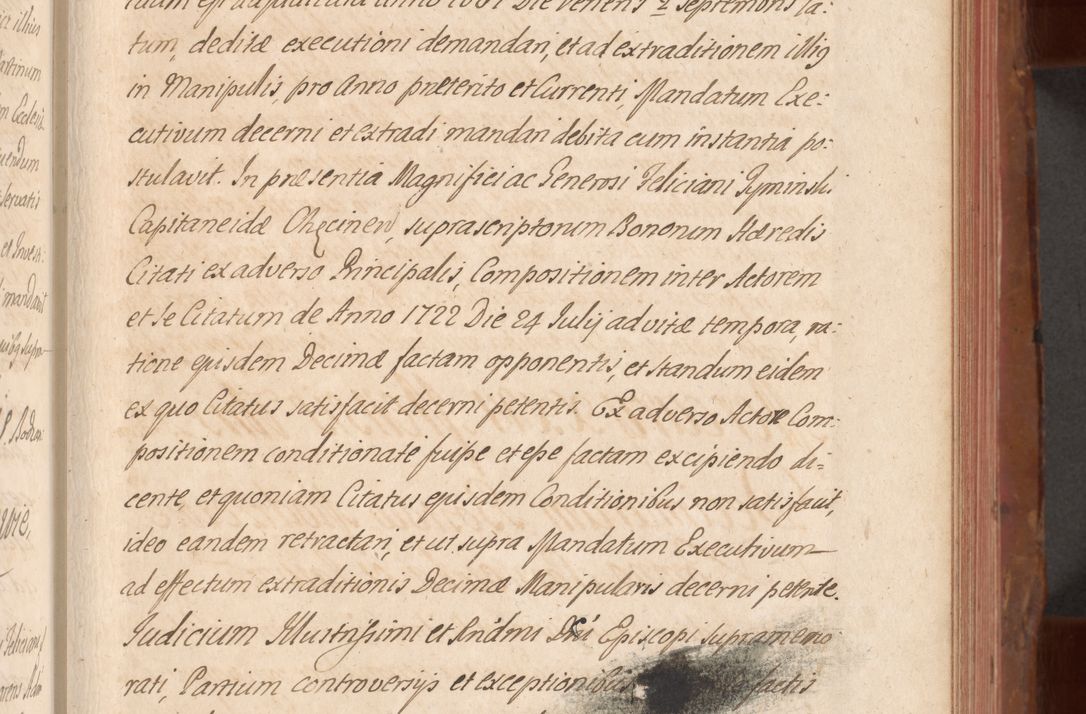 tum, deditæ executioni demandari, et ad extraditionem illig
in Manipulis, pro Anno præterito et Currenti, Mandatum Exe:
cutivum decerni et extradi mandari debita cum instantia po:
stulavit. In præsentia Magnifici ac Generosi Feliciani Gyminski
Capitaneidæ Chęcinen, suprascriptorum Bonorum Hæredis
Citati ex adverso Principalis, Compositionem inter Actorem
et se Citatum de Anno 1722 Die 24 Iulij ad vitæ tempora, ra:
tione ejusdem Decimæ factam opponentis, et standum eidem
ex quo Citatus satisfacit decerni petentis. Ex adverso Actore Com:
positionem conditionate fuisse et esse factam excipiendo di=
cente, et quoniam Citatus ejusdem Conditionibus non satisfacit,
ideo eandem retractari, et ut supra Mandatum Executivum
ad effectum extraditionis Decimæ Manipularis decerni petente.
Iudicium Illustrissimi et Rndmi Dni Episcopi supramemo
rati, Partium controversijs et exceptionibus factis
illius
Ecclesiæ
servatis
et Invest:
mandavit
supra